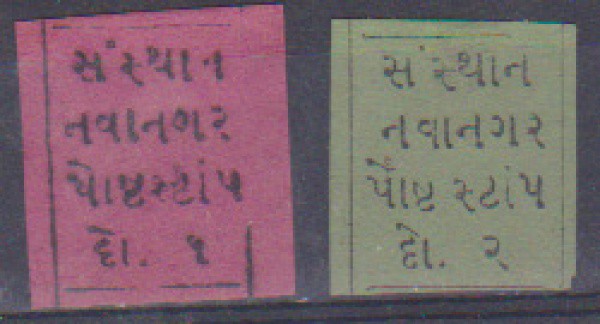 સંસ્થાન
નવાનગર
પોષ્ટસ્ટાંપ
દો. ૧
સંસ્થાન
નવાનગર
પોષ્ટ સ્ટાંપ
દો. ૨